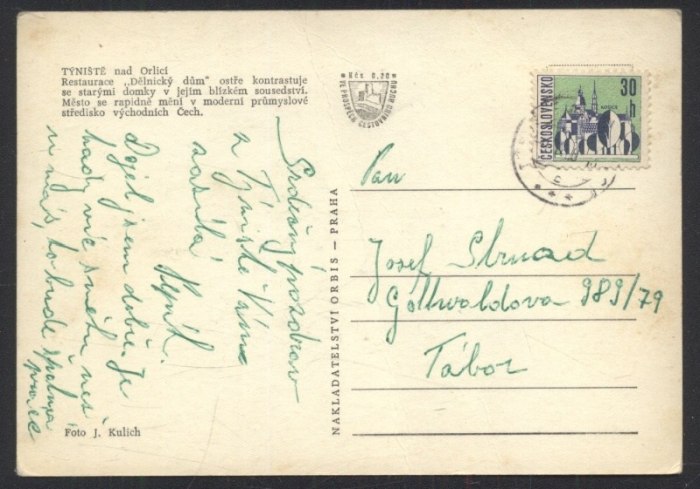 TÝNIŠTĚ nad Orlicí
Restaurace „Dělnický dům" ostře kontrastuje
se starými domky v jejím blízkém sousedství.
Město se rapidně mění v moderní průmyslové
středisko východních Čech.
Kčs 0,20
VE PROSPĚCH CESTOVNÍHO RUCHU
ČESKOSLOVENSKO
30 h
Srdečný pozdrav
z Týniště Vám
zasílá
Dojel jsem dobře. Je
tady víc sněhu než
u nás, to bude
NAKLADATELSTVÍ ORBIS — PRAHA
Pan
Josef Strnad
Gottwaldova 989/79
Tábor
Foto J. Kulich